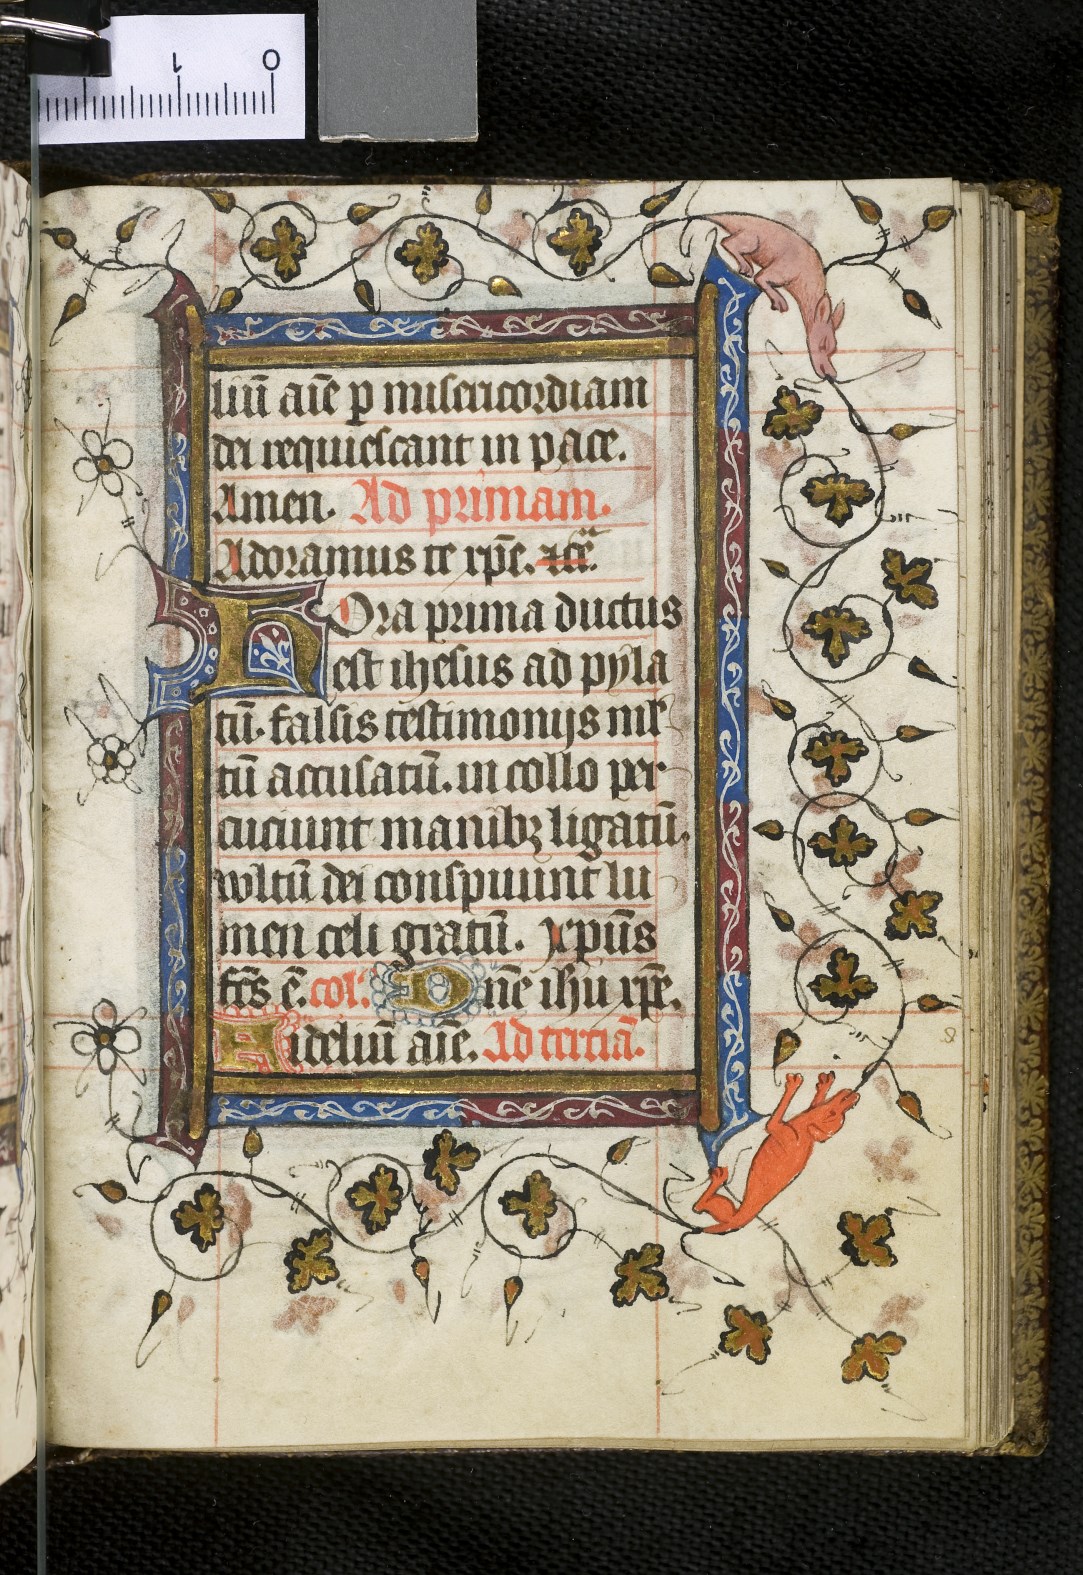 1 0
liū aīe ꝑ misericordiam
dei requiescant in pace.
Amen. Ad primam.
Adoramus te xp̄e. ⁊cē.
Hora prima ductus
est ihesus ad pyla
tū. falsis testimonijs ml᷑
tū accusatū. in collo per
cuciunt manibꝫ ligatū.
wltū dei conspuunt lu
men celi gratū. xp̄us
fc̄s ē. col᷑. Dn̄e ih̄u xp̄e.
Fideliū aīe. Ad terciā.
8